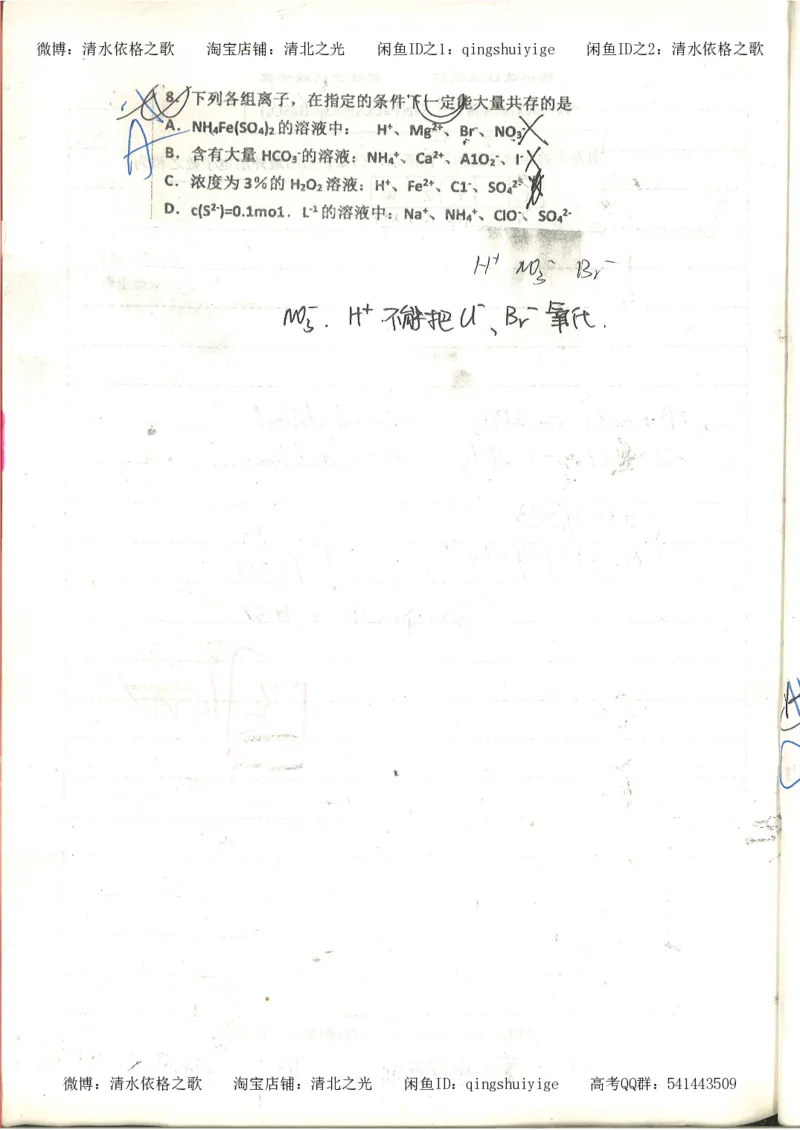 微博：清水依格之歌 淘宝店铺：清北之光 闲鱼ID之1：qingshuiyige 闲鱼ID之2：清水依格之歌
8. 下列各组离子，在指定的条件下一定能大量共存的是
A
A．NH₄Fe(SO₄)₂的溶液中： H⁺、Mg²⁺、Br⁻、NO₃⁻
B．含有大量HCO₃⁻的溶液：NH₄⁺、Ca²⁺、A1O₂⁻、I⁻
C．浓度为3%的H₂O₂溶液：H⁺、Fe²⁺、C1⁻、SO₄²⁻
D．c(S²⁻)=0.1mo1．L⁻¹的溶液中：Na⁺、NH₄⁺、ClO⁻、SO₄²⁻
H⁺ NO₃⁻ Br⁻
NO₃⁻．H⁺不能把Cl⁻、Br⁻氧化．
微博：清水依格之歌 淘宝店铺：清北之光 闲鱼ID：qingshuiyige 高考QQ群：541443509